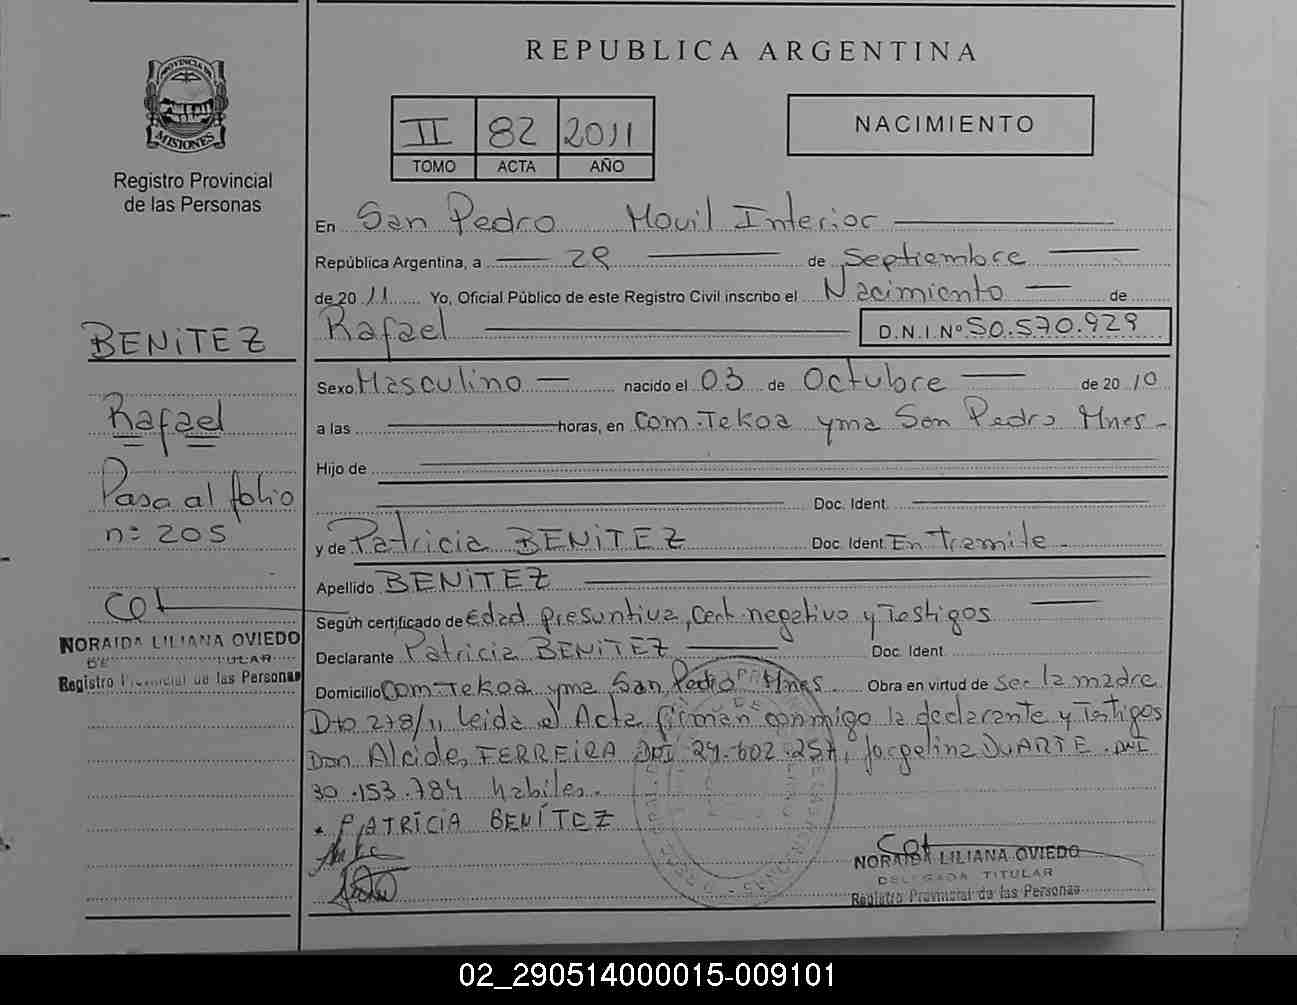 REPUBLICA ARGENTINA
PROVINCIA DE
MISIONES
Registro Provincial
de las Personas
II 82 2011
TOMO ACTA AÑO
NACIMIENTO
En San Pedro Movil Interior
República Argentina, a 29 de Septiembre
de 20 11 Yo, Oficial Público de este Registro Civil inscribo el Nacimiento de
Rafael D.N.I. Nº 50.570.929
BENITEZ
Sexo Masculino nacido el 03 de Octubre de 20 10
Rafael
a las horas, en Com. Tekoa yma San Pedro Mnes.
Hijo de
Pasa al folio
nº 205
Doc. Ident.
y de Patricia BENITEZ Doc. Ident. En Tramite.
Apellido BENITEZ
Según certificado de edad presuntiva, Cert. negativo y Testigos
NORAIDA LILIANA OVIEDO
Registro Provincial de las Personas
Declarante Patricia BENITEZ Doc. Ident.
Domicilio Com. Tekoa yma San Pedro Mnes. Obra en virtud de Ser la madre
Dto 278/11 Leida el Acta firman conmigo la declarante y Testigos
Don Alcides FERREIRA DNI 29.602.257, Jorgelina DUARTE. DNI
30.153.784 habiles.
PATRICIA BENÍTEZ
NORAIDA LILIANA OVIEDO
DELEGADA TITULAR
Registro Provincial de las Personas
02_290514000015-009101